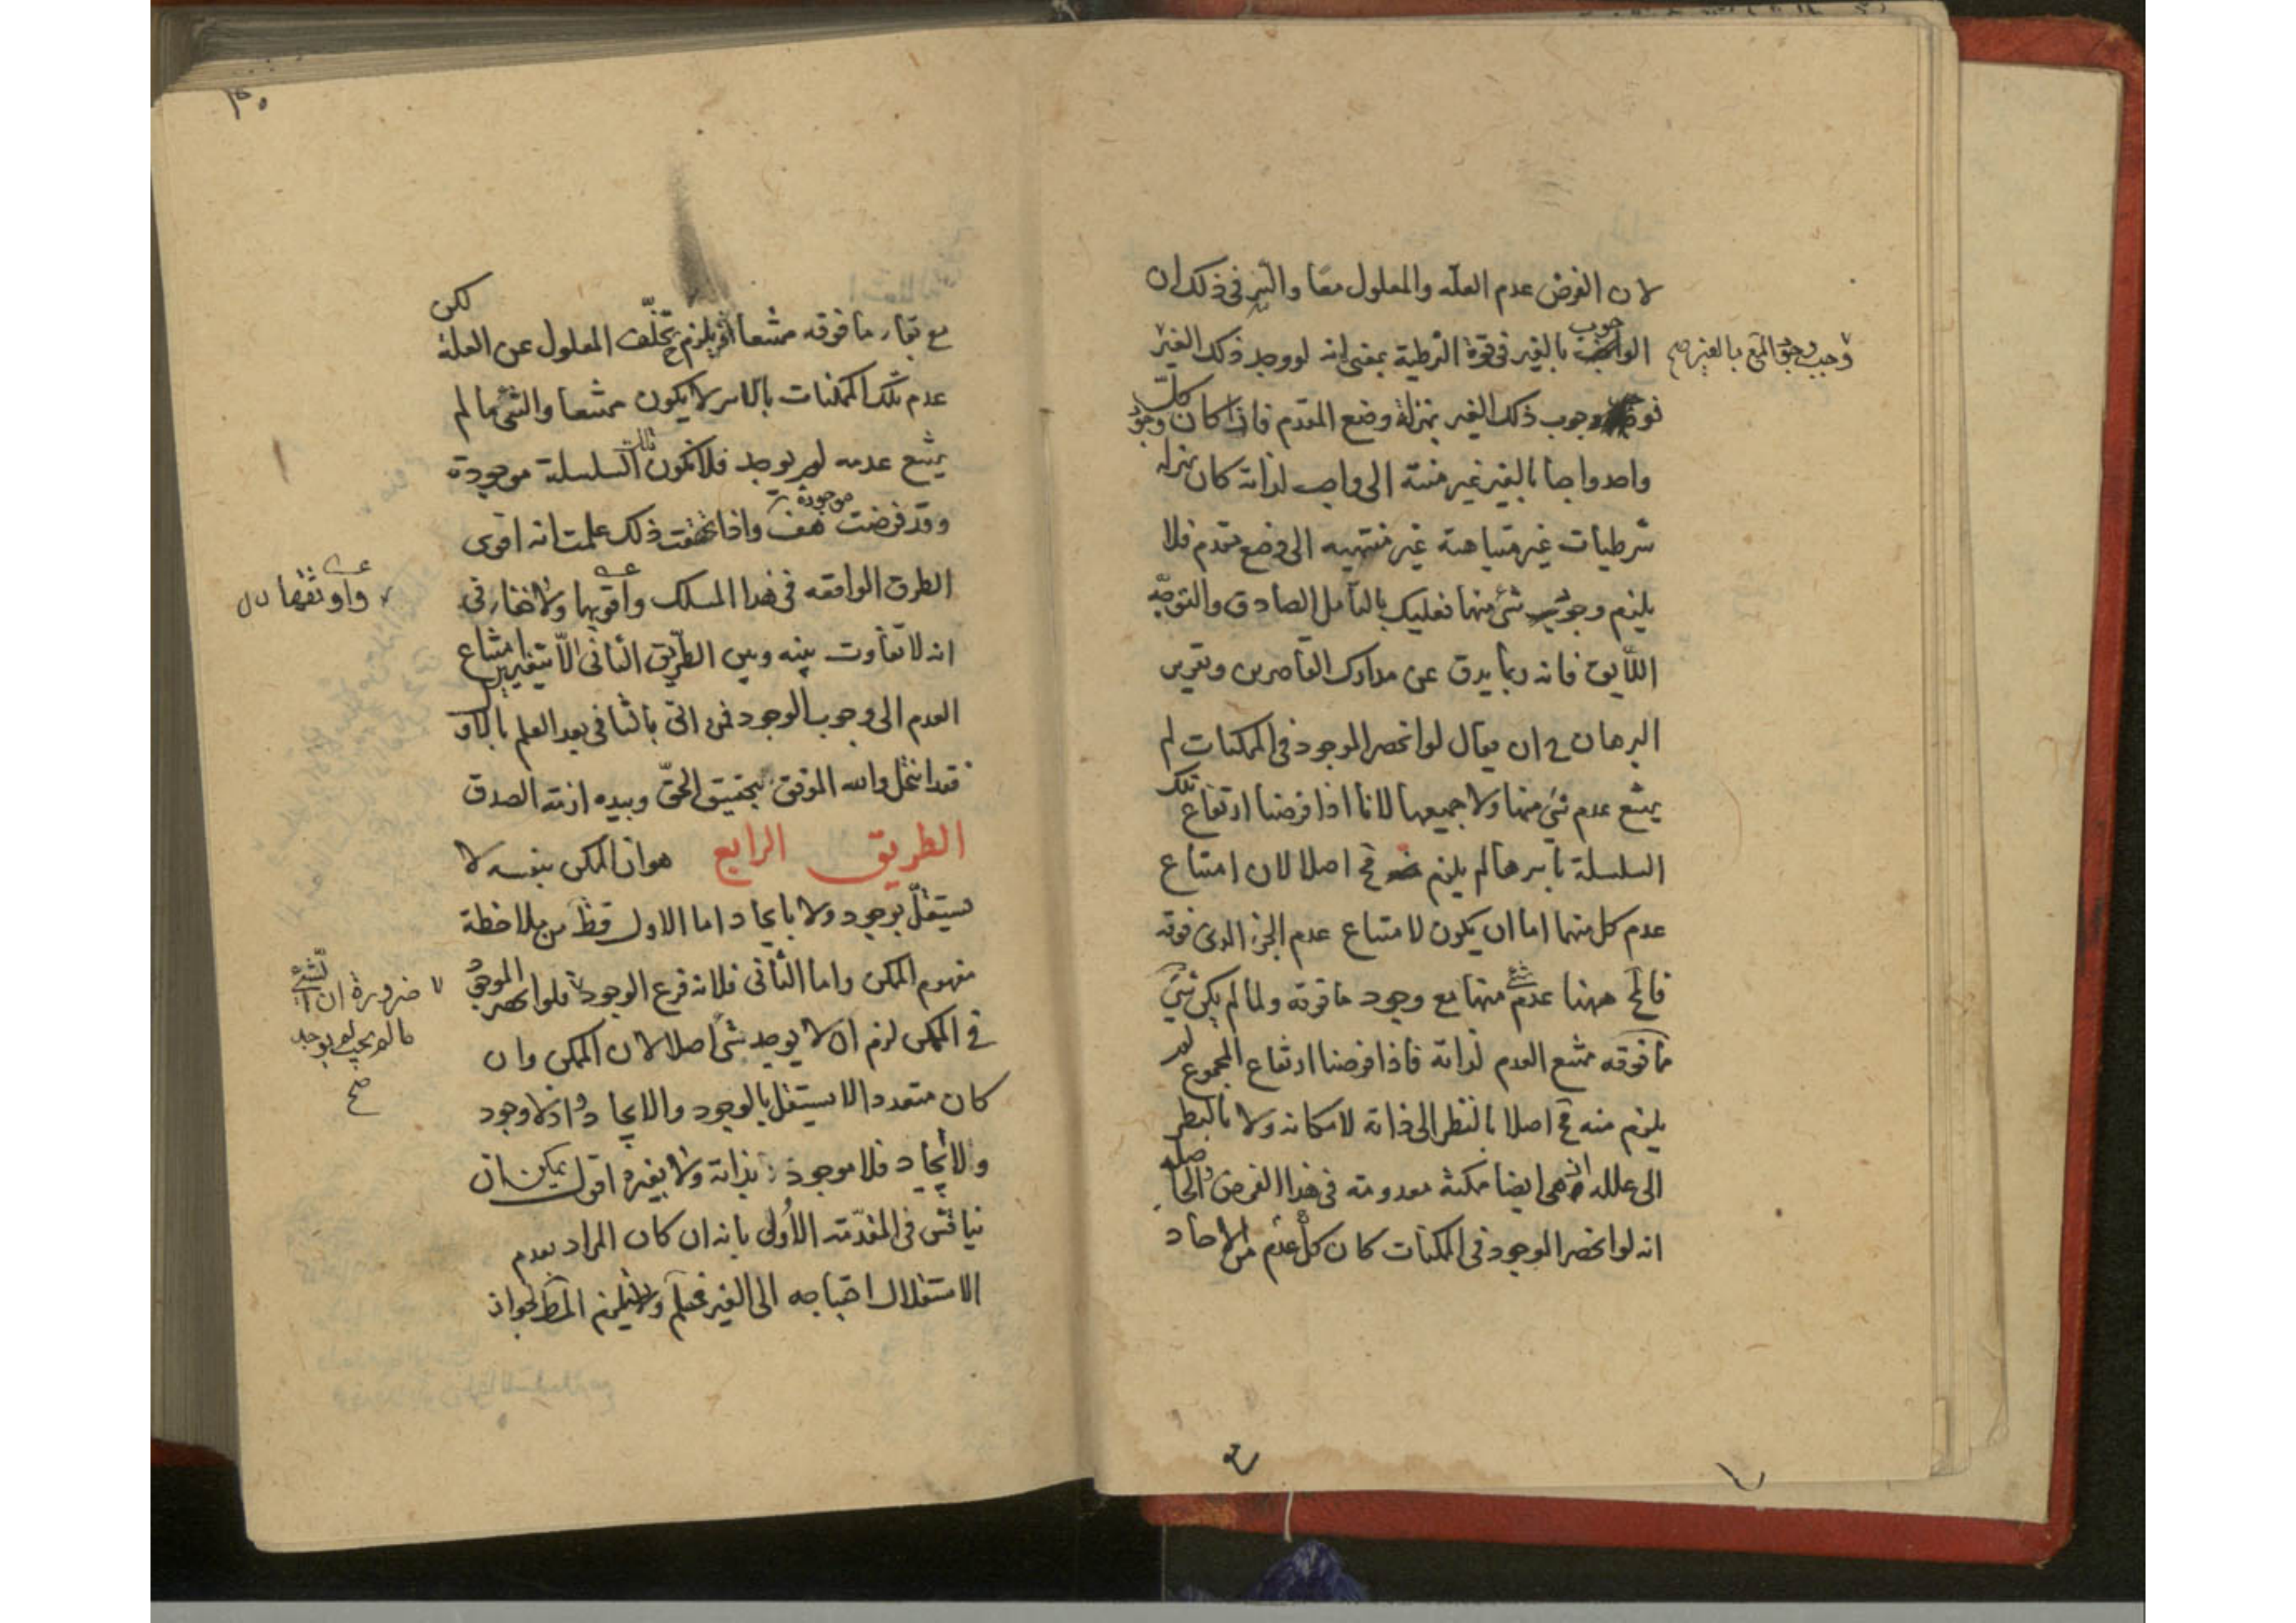 لان الفرض عدم العله والمعلول معا والسر فى ذلك ان
الوجوب بالغير فى قوة الشرطية بمعنى انه لو وجد ذلك الغير
وجب وجوب بالغير صح
وجوب ذلك الغير بمنزلة وضع المقدم فاذا كان كل وجود
واحد واجبا بالغير غير منته الى واجب لذاته كان بمنزله
شرطيات غير متناهية غير منتهيه الى وضع مقدم فلا
يلزم وجود شئ منها فعليك بالتامل الصادق والتوجّه
اللايق فانه ربما يدق عن مدارك القاصرين وتقرير
البرهان ح ان يقال لو انحصر الموجود فى الممكنات لم
يمتنع عدم شئ منها ولا جميعها لانا اذا فرضنا ارتفاع تلك
السلسلة باسرها لم يلزم مح اصلا لان امتناع
عدم كل منها اما ان يكون لامتناع عدم الجزء الذى فوقه
فالمح ههنا عدم شئ منها مع وجود ما فوقه ولما لم يكن شئ
ما فوقه ممتنع العدم لذاته فاذا فرضنا ارتفاع المجموع لم
يلزم منه مح اصلا بالنظر الى ذاته لامكانه ولا بالنظر
الى علله اذ هى ايضا ممكنة معدومة فى هذا الفرض والحاصله
انه لو انحصر الموجود فى الممكنات كان كل عدم من الاحاد
٣٠
مع بقاء ما فوقه ممتنعا اذ يلزم تخلّف المعلول عن العلة لكن
عدم تلك الممكنات بالاسر لا يكون ممتنعا والشئ ما لم
يمتنع عدمه لم يوجد فلا تكون تلك السلسلة موجودة
وقد فرضت موجودة هف واذا تحققت ذلك علمت انه اقوى
الطرق الواقعه فى هذا المسلك واقويها ولا خفاء فى
واوثقها
انه لا تفاوت بينه وبين الطريق الثانى الّا بتغيير امتناع
العدم الى وجوب الوجود فمن اتى بالثانى بعد العلم بالاو
فقد انتحل والله الموفق بتحقيق الحقّ وبيده ازمة الصدق
الطريق الرابع هو ان الممكن بنفسه لا
يستقلّ بوجود ولا بايجاد اما الاول فظ من ملاحظة
مفهوم الممكن واما الثانى فلانه فرع الوجود فلو انحصر الموجود
ضرورة ان الشئ
ما لم يجب لم يوجد
صح
فى الممكن لزم ان لا يوجد شئ اصلا لان الممكن وان
كان متعددا لا يستقل بالوجود والايجاد واذ لا وجود
ولا ايجاد فلا موجود لا بذاته ولا بغيره اقول يمكن ان
يناقش فى المقدّمة الاُولى بانه ان كان المراد بعدم
الاستقلال احتياجه الى الغير فمسلّم ولا يلزم المط لجواز